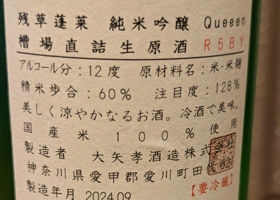 残草蓬莱 純米吟醸 Queeen
槽場直詰生原酒 R5BY
アルコール分：12度 原材料名：米・米麹
精米歩合：60% 注目度：128%
美しく涼やかなるお酒。冷酒で美味。
国産米100%使用
製造者 大矢孝酒造株式会社
神奈川県愛甲郡愛川町田代
製造年月 2024.09 【要冷蔵】